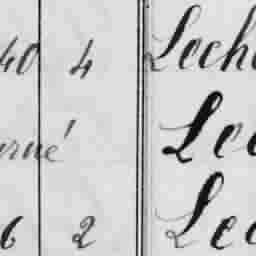 40 4 Lech
urné Lec
6 2 Lec